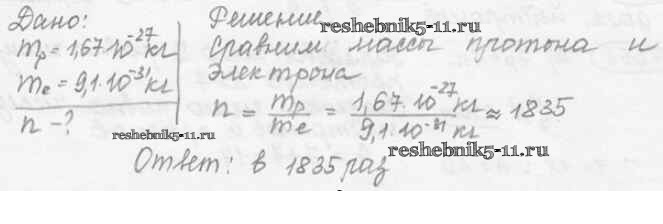 Дано:
mp = 1,67·10⁻²⁷кг
me = 9,1·10⁻³¹кг
n – ?
Решение
reshebnik5-11.ru
Сравним массы протона и
электрона
n = mp/me = 1,67·10⁻²⁷кг/9,1·10⁻³¹кг ≈ 1835
reshebnik5-11.ru
reshebnik5-11.ru
Ответ: в 1835 раз